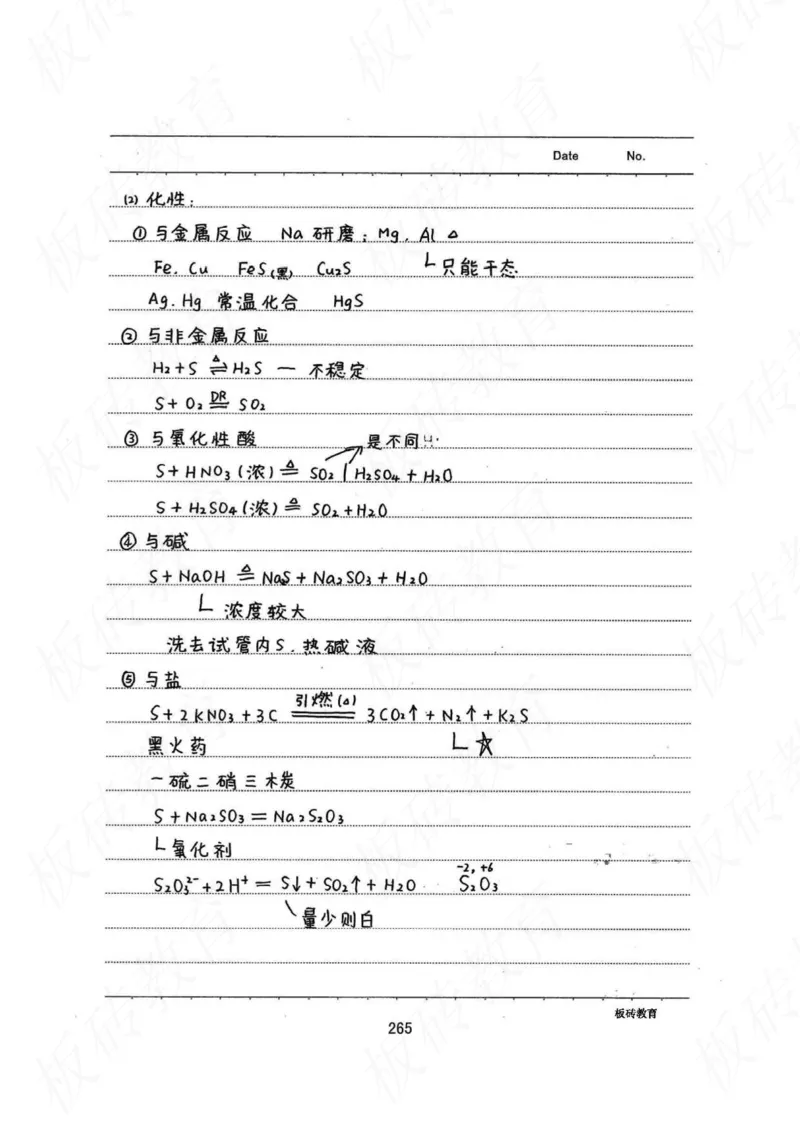 Date No.
(2) 化性：
① 与金属反应 Na 研磨；Mg. Al △
Fe. Cu FeS(黑) Cu₂S └只能干态.
Ag. Hg 常温化合 HgS
② 与非金属反应
H₂+S ⇌(△) H₂S — 不稳定
S+ O₂ =(点燃) SO₂
③ 与氧化性酸 是不同
S+HNO₃(浓) =(△) SO₂ | H₂SO₄ + H₂O
S+H₂SO₄(浓) =(△) SO₂+H₂O
④ 与碱
S+NaOH =(△) NaS+Na₂SO₃+H₂O
└ 浓度较大
洗去试管内S. 热碱液
⑤ 与盐
S+2KNO₃+3C =(引燃(△)) 3CO₂↑+N₂↑+K₂S
黑火药 └☆
一硫二硝三木炭
S+Na₂SO₃=Na₂S₂O₃
└氧化剂
-2, +6
S₂O₃²⁻+2H⁺= S↓+SO₂↑+H₂O S₂O₃
量少则白
板砖教育
265